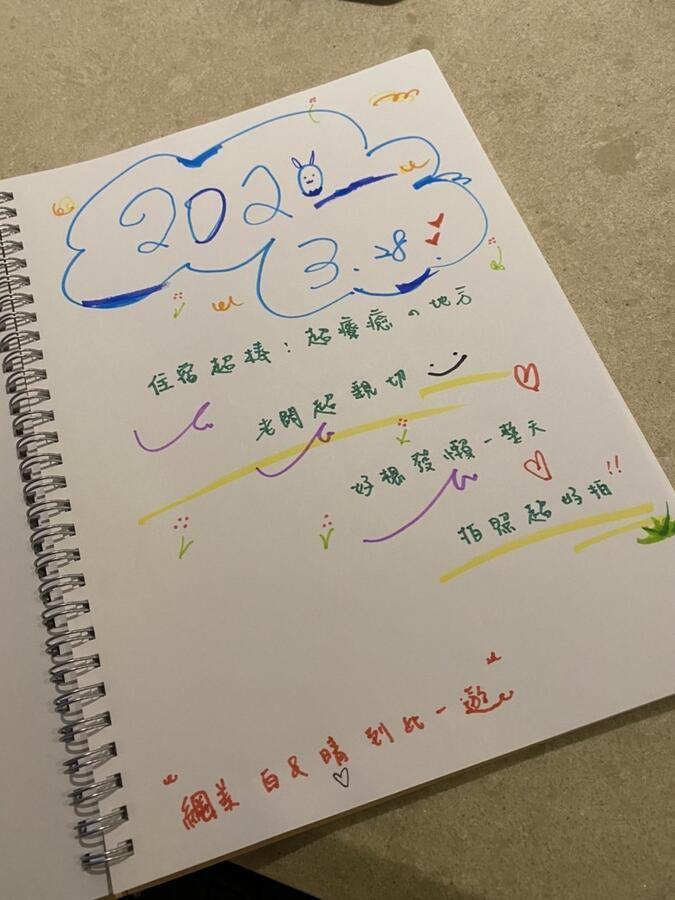 2020
3.28.
住宿超棒:超療癒の地方
老闆超親切
好想發懶一整天
拍照超好拍!!
"網美白又晴到此一遊"